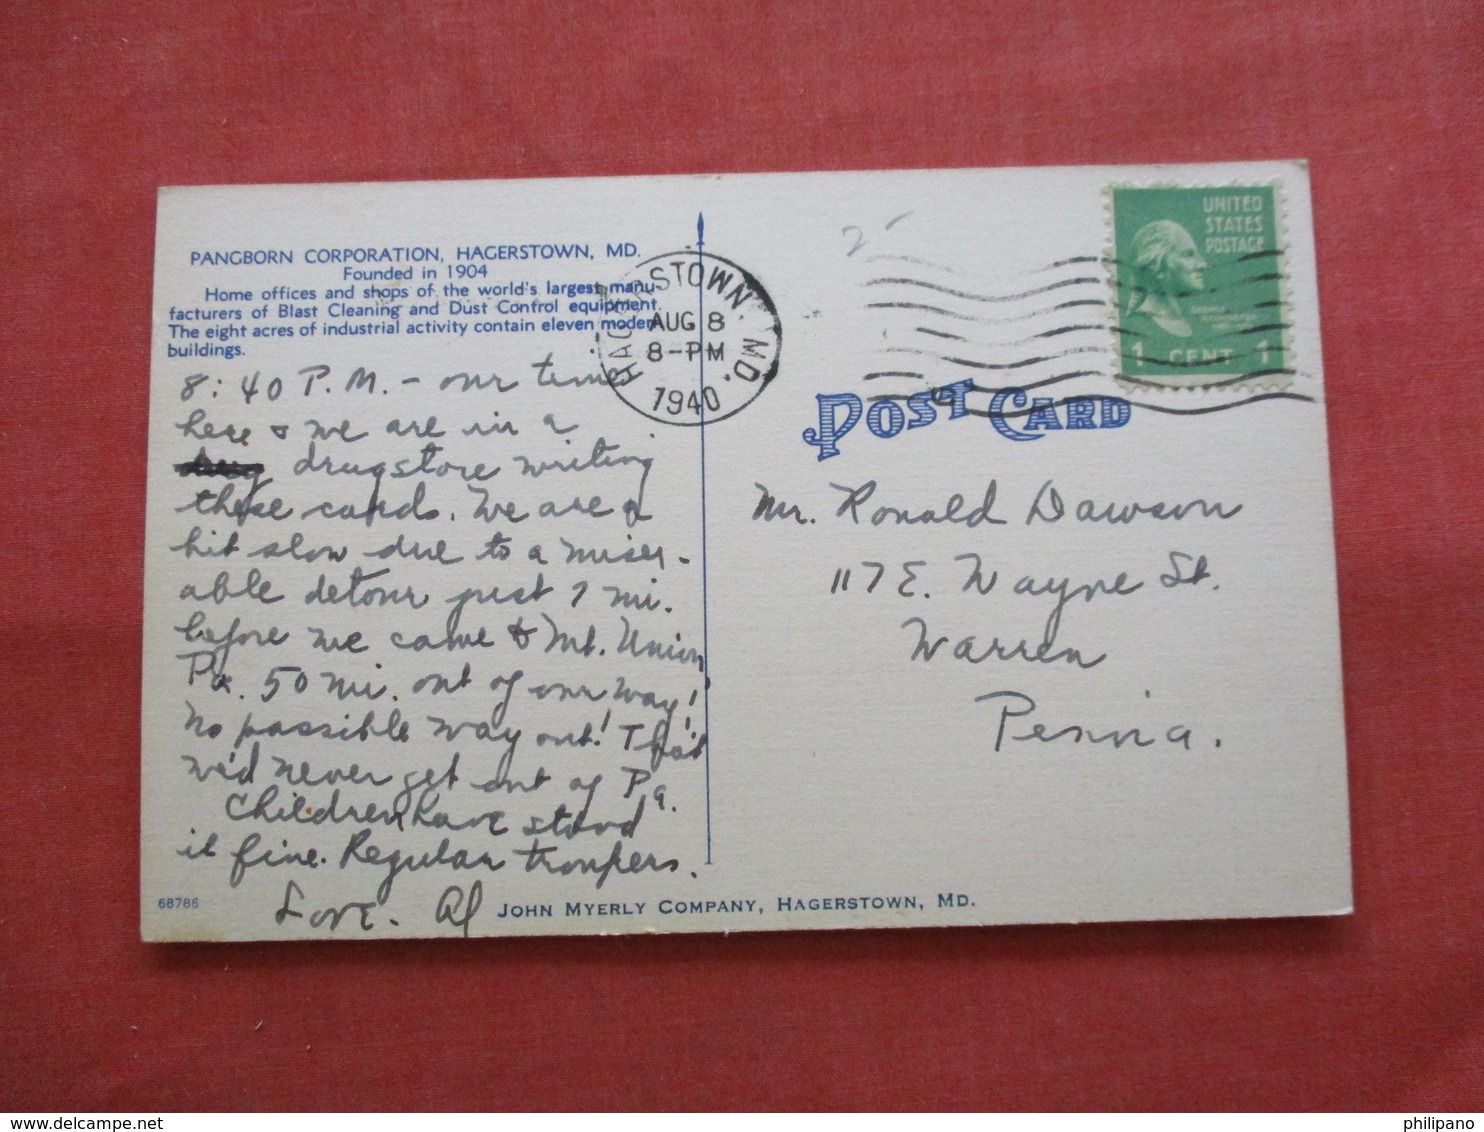 PANGBORN CORPORATION, HAGERSTOWN, MD.
Founded in 1904
Home offices and shops of the world's largest manu-
facturers of Blast Cleaning and Dust Control equipment.
The eight acres of industrial activity contain eleven modern
buildings.
8:40 P.M. - our time
here & we are in a
drugstore writing
these cards. We are a
bit slow due to a miser-
able detour just 7 mi.
before we came to Mt. Union
Pa. 50 mi. out of our way!
No possible way out! Tho't
we'd never get out of Pa.
Children have stood
it fine. Regular troupers.
Love. Al
68786
JOHN MYERLY COMPANY, HAGERSTOWN, MD.
HAGERSTOWN, MD.
AUG 8
8-PM
1940
UNITED
STATES
POSTAGE
1 CENT 1
POST CARD
Mr. Ronald Dawson
117 E. Wayne St.
Warren
Penna.
www.delcampe.net
philipano